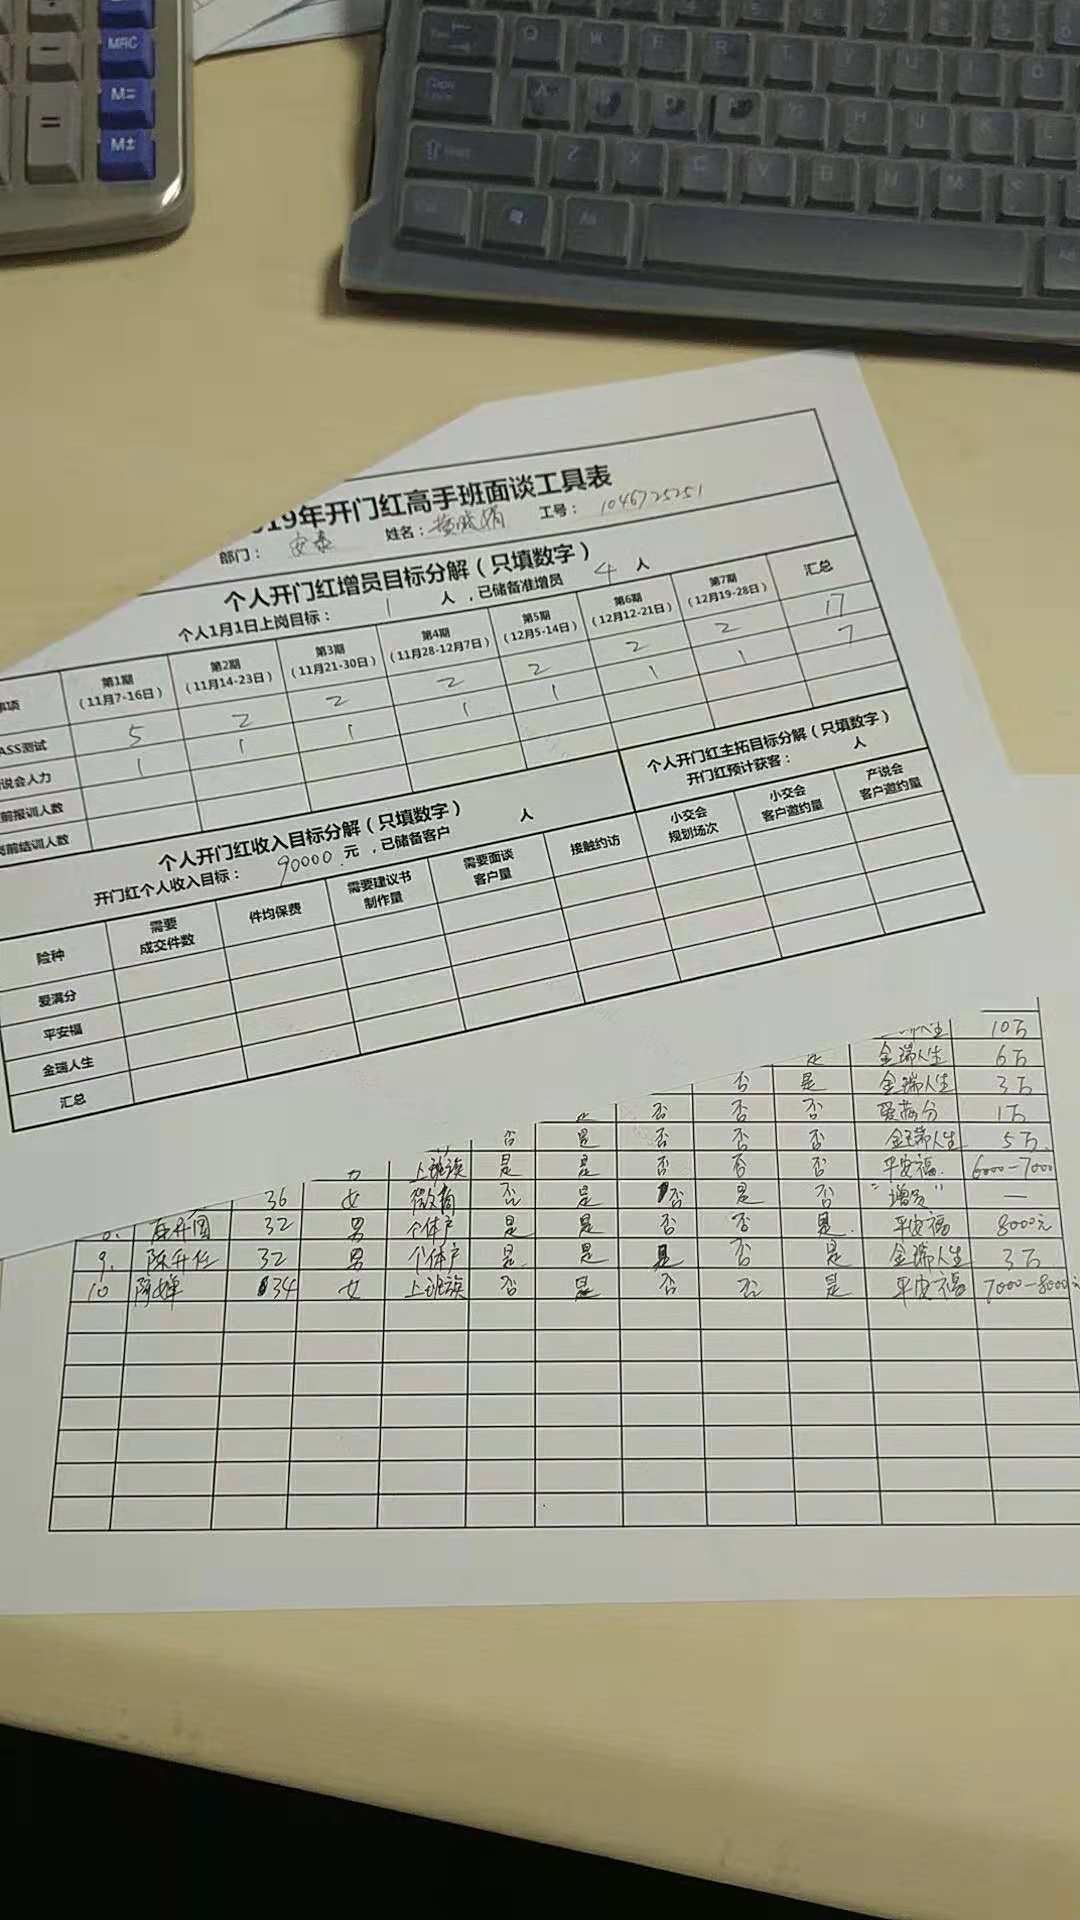 MRC
M=
M±
=
Q W E R T
A
Z X C V B N M
19年开门红高手班面谈工具表
部门： 安泰 姓名： 工号： 1046725251
个人开门红增员目标分解（只填数字）
个人1月1日上岗目标： 1 人 ，已储备准增员 4 人
事项 第1期（11月7-16日） 第2期（11月14-23日） 第3期（11月21-30日） 第4期（11月28-12月7日） 第5期（12月5-14日） 第6期（12月12-21日） 第7期（12月19-28日） 汇总
ASS测试 5 2 2 2 2 2 2 17
说会人力 1 1 1 1 1 1 1 7
前报训人数
岗前结训人数
个人开门红收入目标分解（只填数字）
开门红个人收入目标： 90000. 元 ，已储备客户 人
个人开门红主拓目标分解（只填数字）
开门红预计获客： 人
险种 需要成交件数 件均保费 需要建议书制作量 需要面谈客户量 接触约访 小交会规划场次 小交会客户邀约量 产说会客户邀约量
爱满分
平安福
金瑞人生
汇总
人生 10万
是 金瑞人生 6万
否 是 金瑞人生 3万
否 否 否 爱满分 1万
否 是 否 否 否 金瑞人生 5万
上班族 是 是 否 否 否 平安福. 6000-7000
36 女 微商 否 是 否 是 否 “增员” —
8. 陈升国 32 男 个体户 是 是 否 否 是. 平安福 8000元
9. 陈升任 32 男 个体户 是 是 是 否 是 金瑞人生 3万
10 陈婵 34 女 上班族 否 是 否 否 是 平安福 7000-8000元